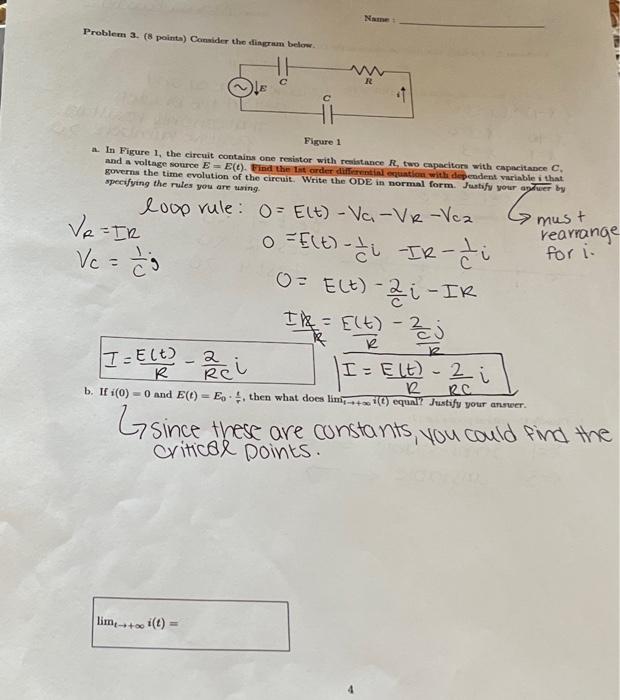 Name :
Problem 3. (8 points) Consider the diagram below.
C
R
E
i
C
Figure 1
a. In Figure 1, the circuit contains one resistor with resistance R, two capacitors with capacitance C,
and a voltage source E = E(t). Find the 1st order differential equation with dependent variable i that
governs the time evolution of the circuit. Write the ODE in normal form. Justify your answer by
specifying the rules you are using.
loop rule: 0 = E(t) - Vc1 - VR - Vc2
must
rearrange
for i.
VR = IR
0 = E(t) - 1/C i - IR - 1/C i
Vc = 1/C i
0 = E(t) - 2/C i - IR
IR/R = E(t)/R - 2/C i/R
I = E(t)/R - 2/RC i
I = E(t)/R - 2/RC i
b. If i(0) = 0 and E(t) = E₀ · t/τ, then what does lim t→+∞ i(t) equal? Justify your answer.
since these are constants, you could find the
critical points.
lim t→+∞ i(t) =
4